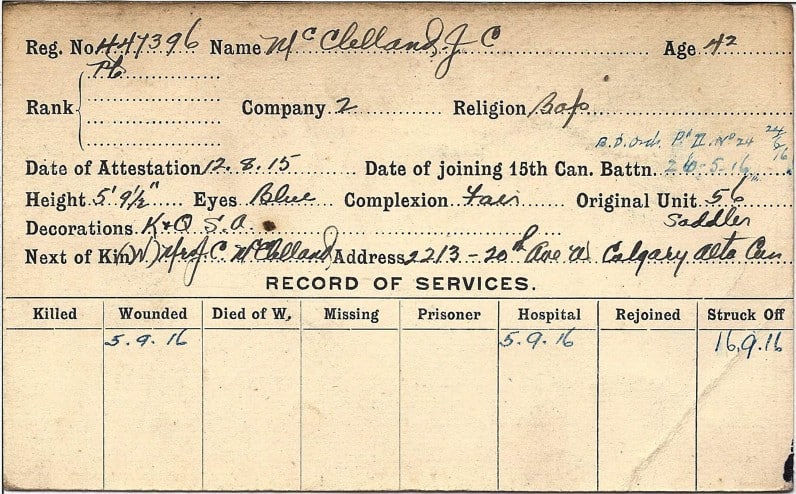 Reg. No. 447396 Name McClelland, J C Age 42
Pte
Rank Company 2 Religion Bap
B.D. Ord. Pt II. No 24 24/5/16
Date of Attestation 12.8.15 Date of joining 15th Can. Battn. 26-5-16
Height 5' 9½" Eyes Blue Complexion Fair Original Unit 56
Decorations K & Q S.A. Saddler
Next of Kin (W) Mrs J. C McClelland, Address 2213-20th Ave W Calgary Alta Can
RECORD OF SERVICES.
Killed Wounded Died of W. Missing Prisoner Hospital Rejoined Struck Off
5.9.16 5.9.16 16.9.16